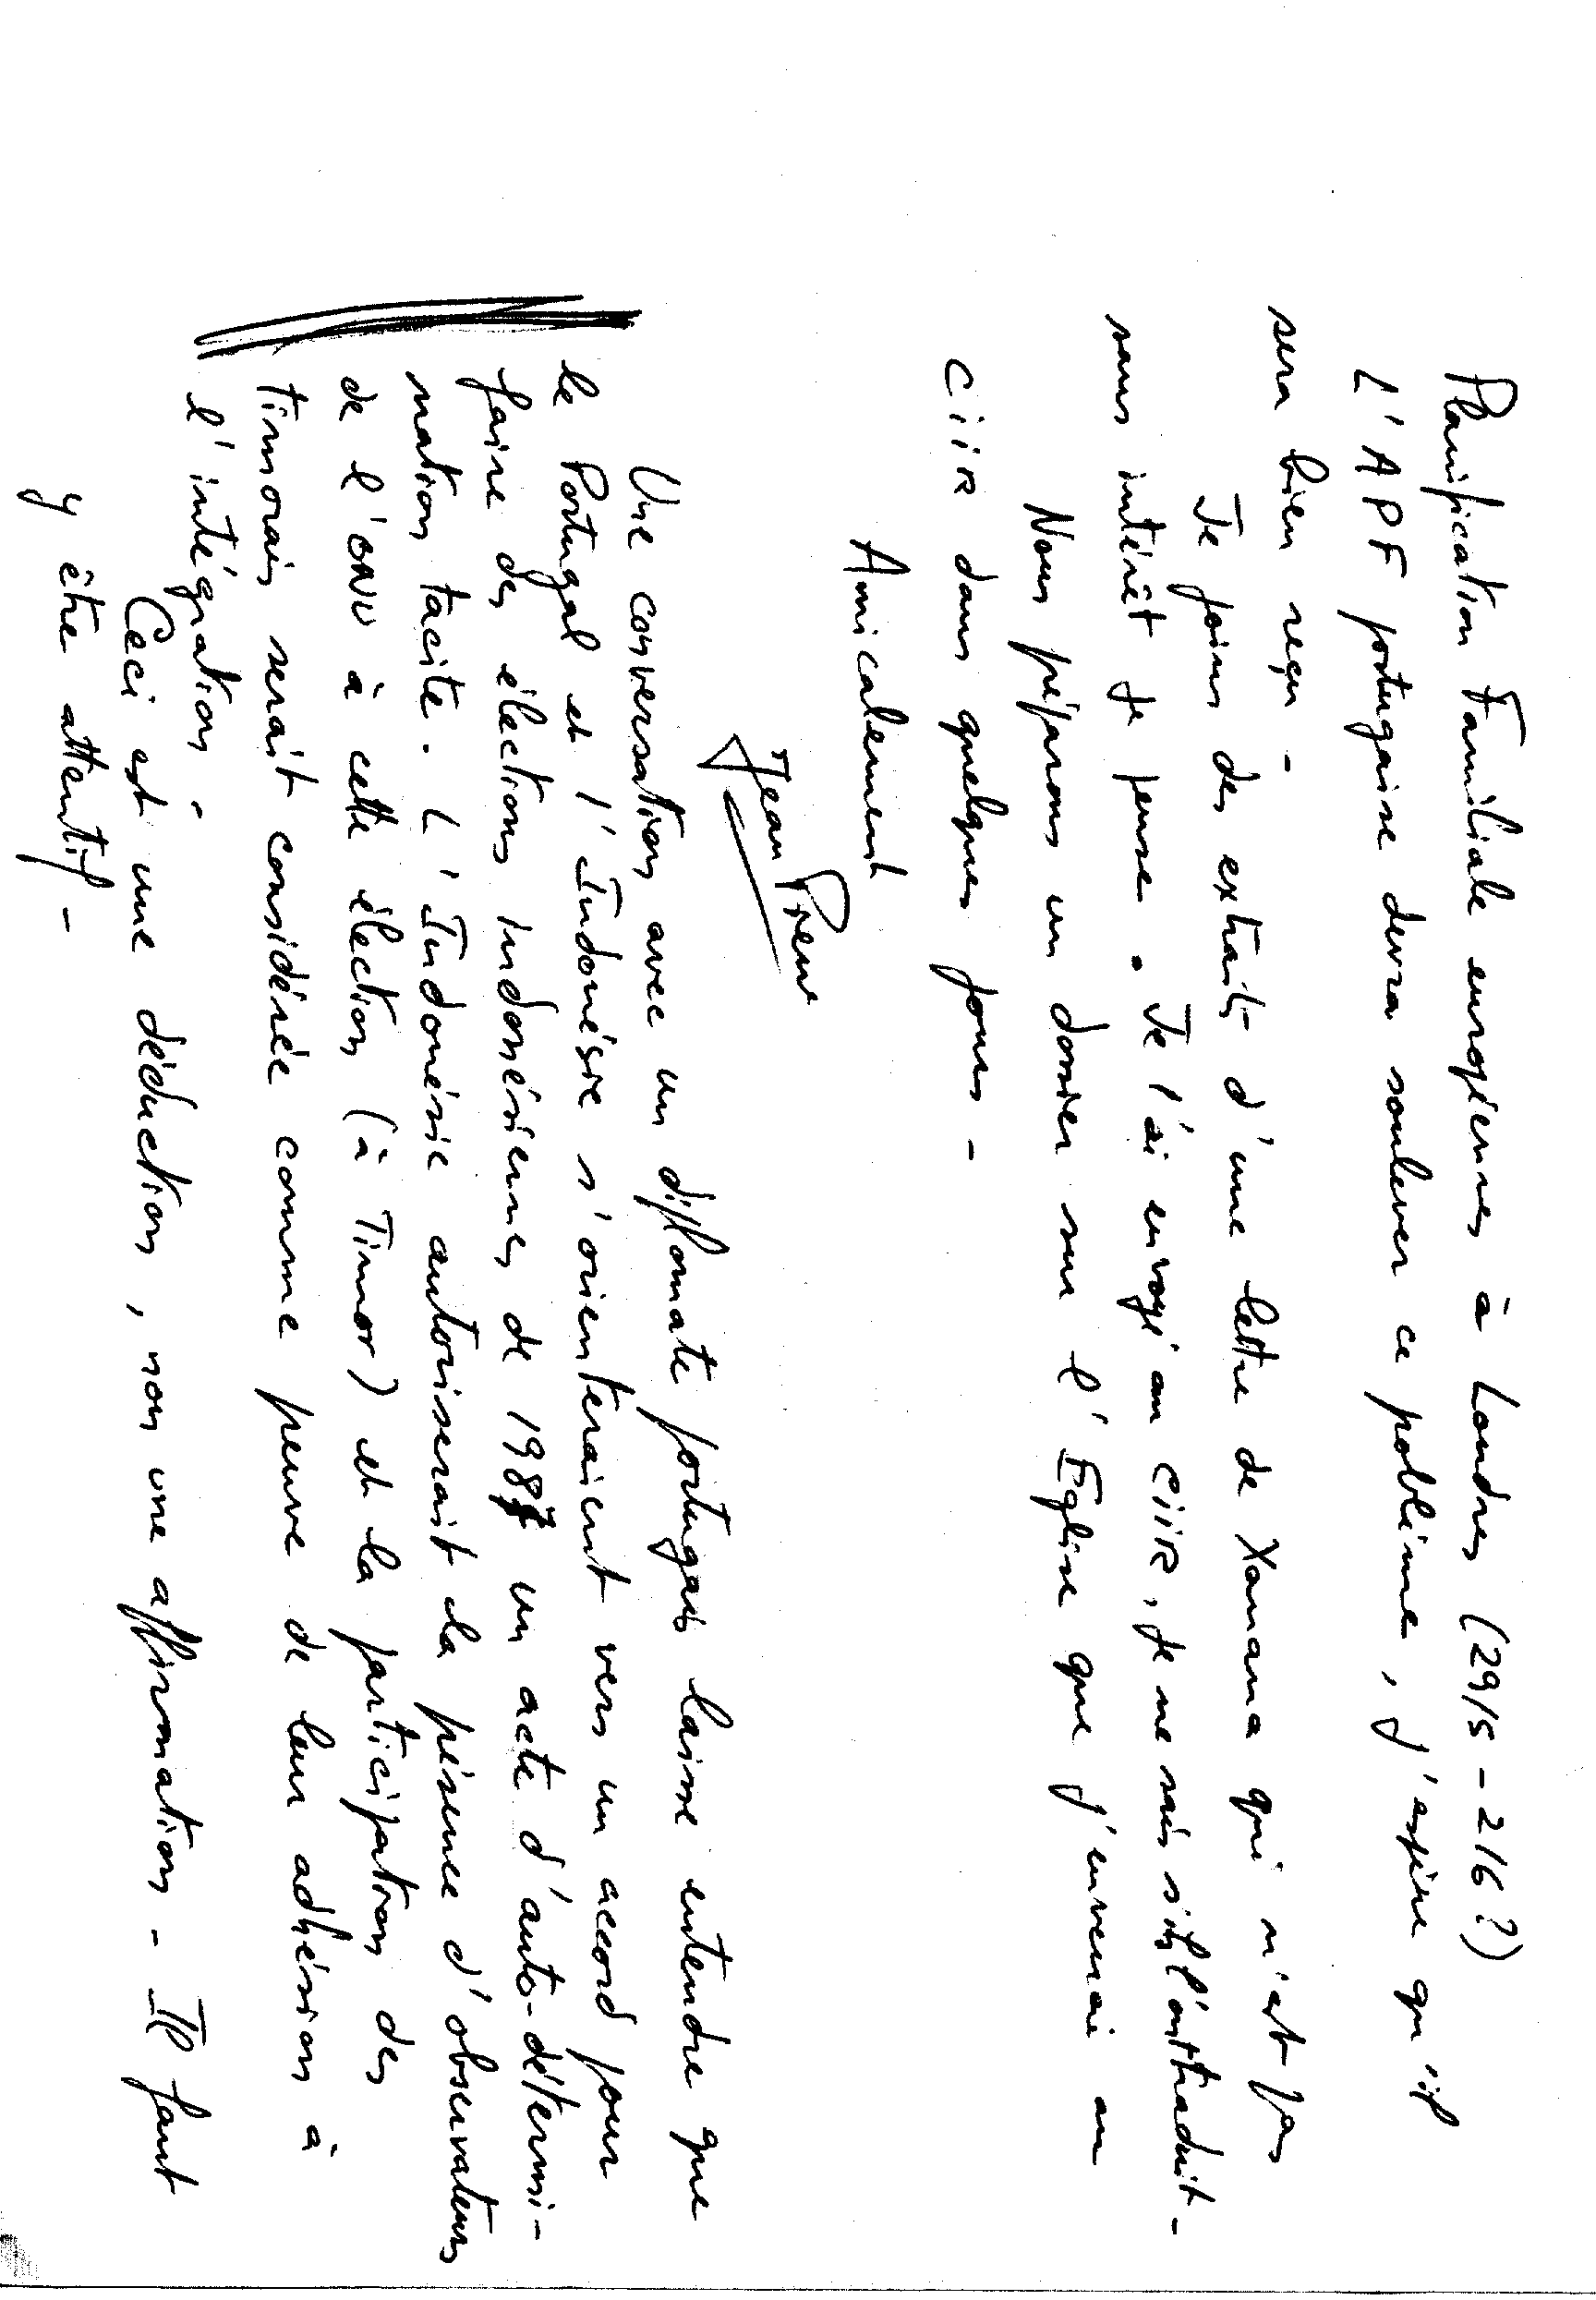 Planification Familiale européennes à Londres (29/5 - 2/6 ?)
L'APF portugaise devra soulever ce problème, j'espère qu'il
sera bien reçu -
Je joins des extraits d'une lettre de Xanana qui n'est pas
sans intérêt je pense. Je l'ai envoyé au CIIR, je ne sais s'ils l'ont traduit -
Nous préparons un dossier sur l'Eglise que j'enverrai au
CIIR dans quelques jours -
Amicalement
Jean Pierre
Une conversation avec un diplomate portugais laisse entendre que
le Portugal et l'Indonésie s'orienteraient vers un accord pour
faire des élections indonésiennes de 1987 un acte d'auto-détermi-
nation tacite. L'Indonésie autoriserait la présence d'observateurs
de l'ONU à cette élection (à Timor) et la participation des
Timorais serait considérée comme preuve de leur adhésion à
l'intégration -
Ceci est une déduction, non une affirmation - Il faut
y être attentif -